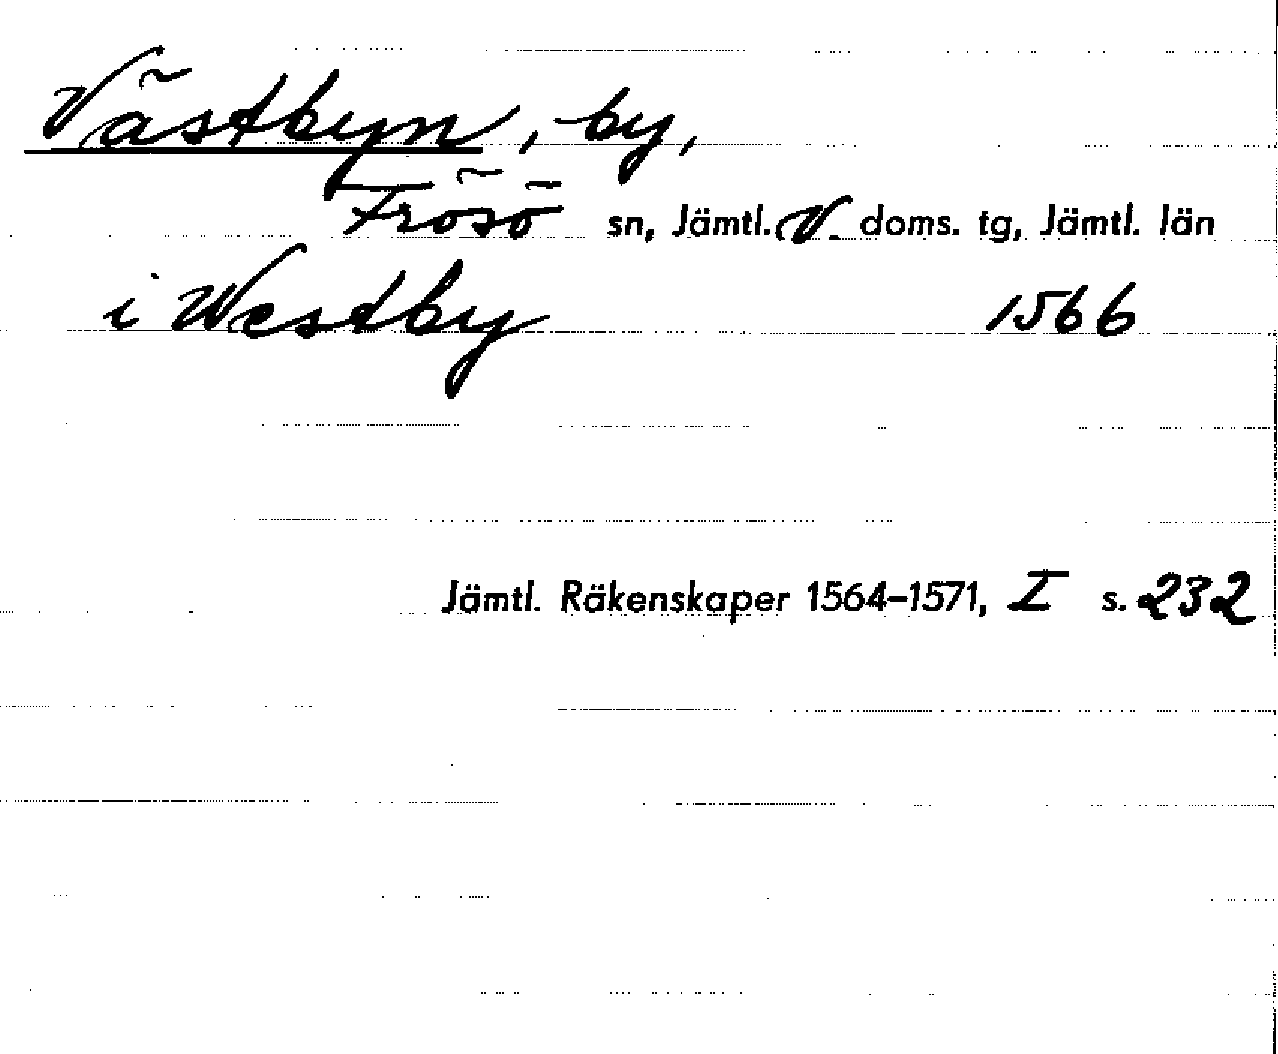 Västbyn, by,
Frösö sn, Jämtl. V. doms. tg, Jämtl. län
i Westby 1566
Jämtl. Räkenskaper 1564–1571, I s. 232